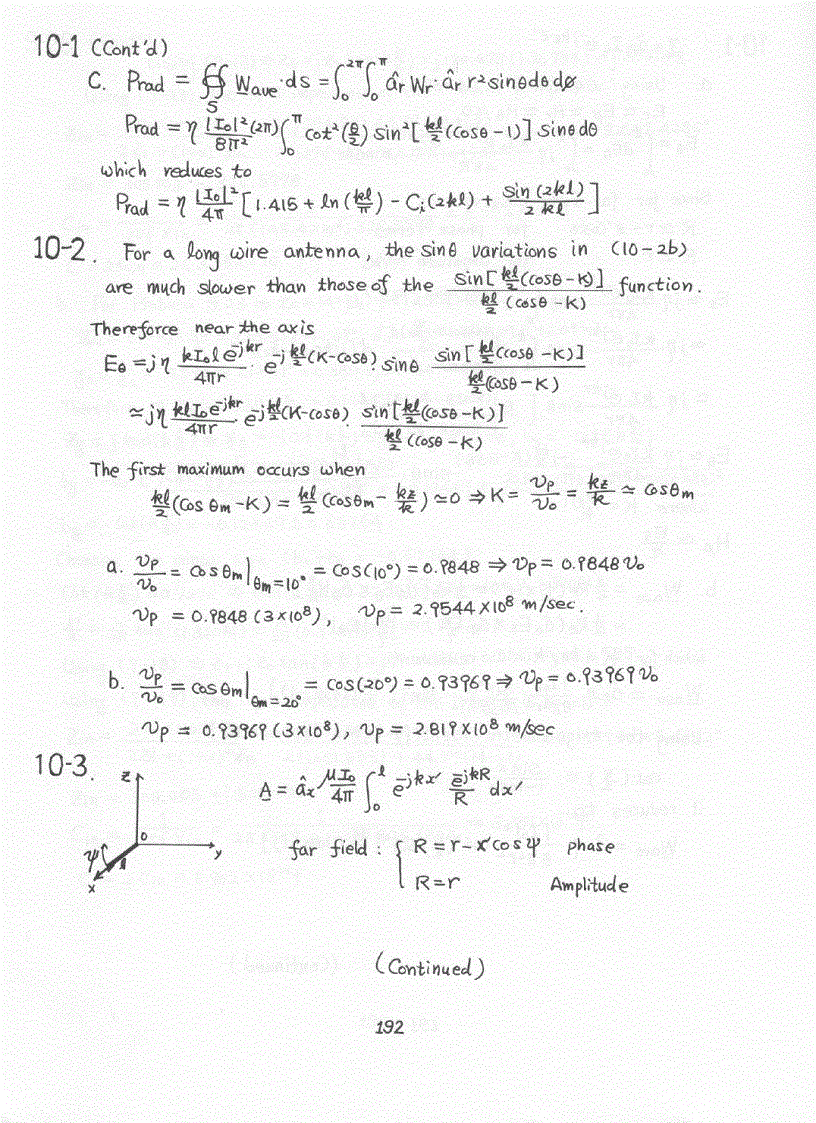 10-1 (Cont'd)
C. Prad = ∯_S W_ave · ds = ∫_0^{2π} ∫_0^π â_r W_r · â_r r² sinθ dθ dø
Prad = η |I₀|²/8π² (2π) ∫_0^π cot²(θ/2) sin²[kl/2 (cosθ − 1)] sinθ dθ
which reduces to
Prad = η |I₀|²/4π [1.415 + ln(kl/π) − Ci(2kl) + sin(2kl)/2kl]
10-2. For a long wire antenna, the sinθ variations in (10-2b)
are much slower than those of the sin[kl/2 (cosθ − K)] / kl/2 (cosθ − K) function.
Thereforce near the axis
E_θ = jη kI₀l e^{-jkr}/4πr · e^{-j kl/2 (K-cosθ)} · sinθ sin[kl/2 (cosθ − K)] / kl/2 (cosθ − K)
≃ jη klI₀ e^{-jkr}/4πr · e^{-j kl/2 (K-cosθ)} · sin[kl/2 (cosθ − K)] / kl/2 (cosθ − K)
The first maximum occurs when
kl/2 (cosθm − K) = kl/2 (cosθm − kz/k) ≃ 0 ⇒ K = vp/v₀ = kz/k ≃ cosθm
a. vp/v₀ = cosθm|θm=10° = cos(10°) = 0.9848 ⇒ vp = 0.9848 v₀
vp = 0.9848 (3×10⁸), vp = 2.9544×10⁸ m/sec.
b. vp/v₀ = cosθm|θm=20° = cos(20°) = 0.93969 ⇒ vp = 0.93969 v₀
vp = 0.93969 (3×10⁸), vp = 2.819×10⁸ m/sec
10-3.
A = â_x μI₀/4π ∫_0^l e^{-jkx′} e^{-jkR}/R dx′
z
o
y
ψ
l
x
far field : { R = r − x′cosψ phase
R = r Amplitude
(Continued)
192